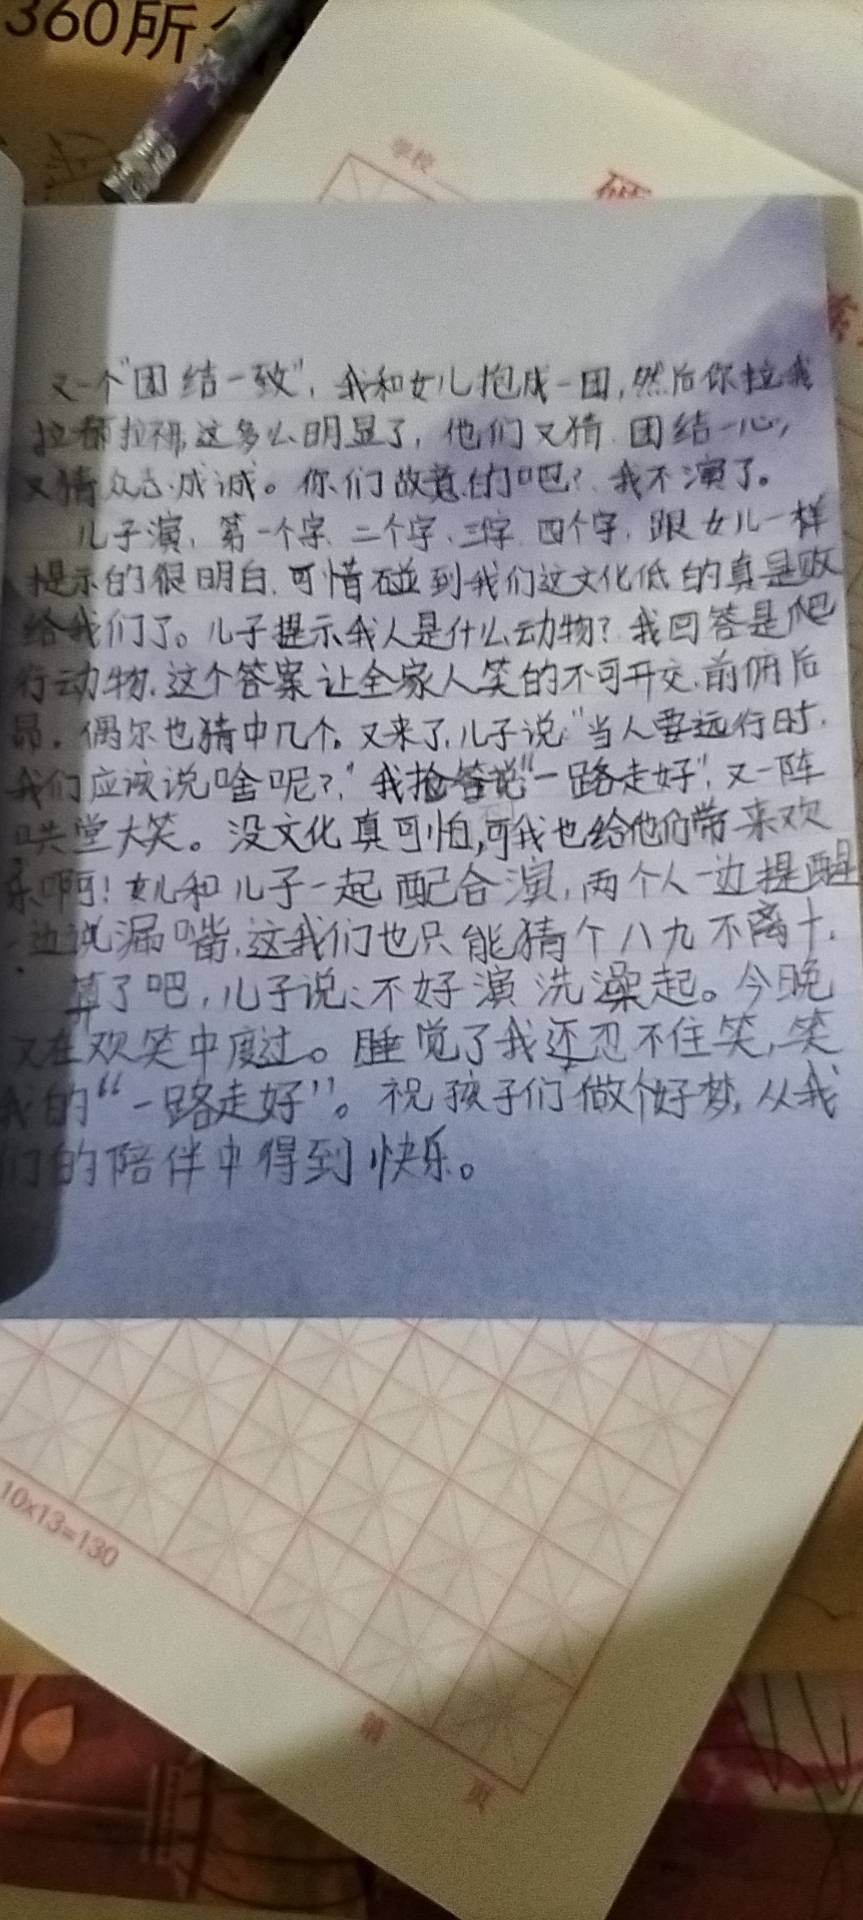 360所
学校
又一个"团结一致",我和女儿抱成一团,然后你拉我
拉都拉祢,这多么明显了,他们又猜.团结一心,
又猜众志成诚。你们故意的吧?我不演了。
儿子演,第一个字.二个字、三字.四个字,跟女儿一样
提示的很明白.可惜碰到我们这文化低的真是败
给我们了。儿子提示我人是什么动物?我回答是爬
行动物.这个答案让全家人笑的不可开交.前俯后
昂。偶尔也猜中几个。又来了.儿子说"当人要远行时.
我们应该说啥呢?"我抢答说"一路走好",又一阵
哄堂大笑。没文化真可怕,可我也给他们带来欢
乐啊!女儿和儿子一起配合演,两个人一边提醒
一边说漏嘴.这我们也只能猜个八九不离十.
算了吧,儿子说:不好演洗澡起。今晚
又在欢笑中度过。睡觉了我还忍不住笑,笑
我的"一路走好"。祝孩子们做个好梦,从我
们的陪伴中得到快乐。
10×13=130
第
页